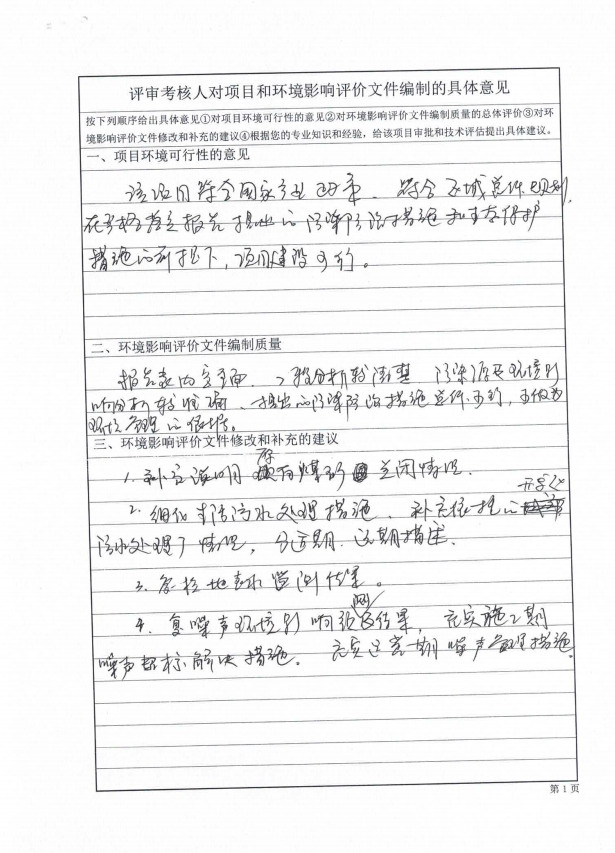 评审考核人对项目和环境影响评价文件编制的具体意见
按下列顺序给出具体意见①对项目环境可行性的意见②对环境影响评价文件编制质量的总体评价③对环
境影响评价文件修改和补充的建议④根据您的专业知识和经验，给该项目审批和技术评估提出具体建议。
一、项目环境可行性的意见
该项目符合国家产业政策、符合区域总体规划，
在严格落实报告提出的污染防治措施和生态保护
措施的前提下，项目建设可行。
二、环境影响评价文件编制质量
报告表内容全面、工程分析较清楚，污染源及环境影
响分析较准确、提出的污染防治措施总体可行，可做为
环境管理的依据。
三、环境影响评价文件修改和补充的建议
1. 补充说明原有煤矿关闭情况.
2. 细化生活污水处理措施、补充依托的
污水处理厂情况，分近期、远期描述.
3. 复核地表水监测结果。
4. 复噪声环境影响预测结果，充实施工期
噪声超标解决措施。充实运营期噪声管理措施.
第 1 页